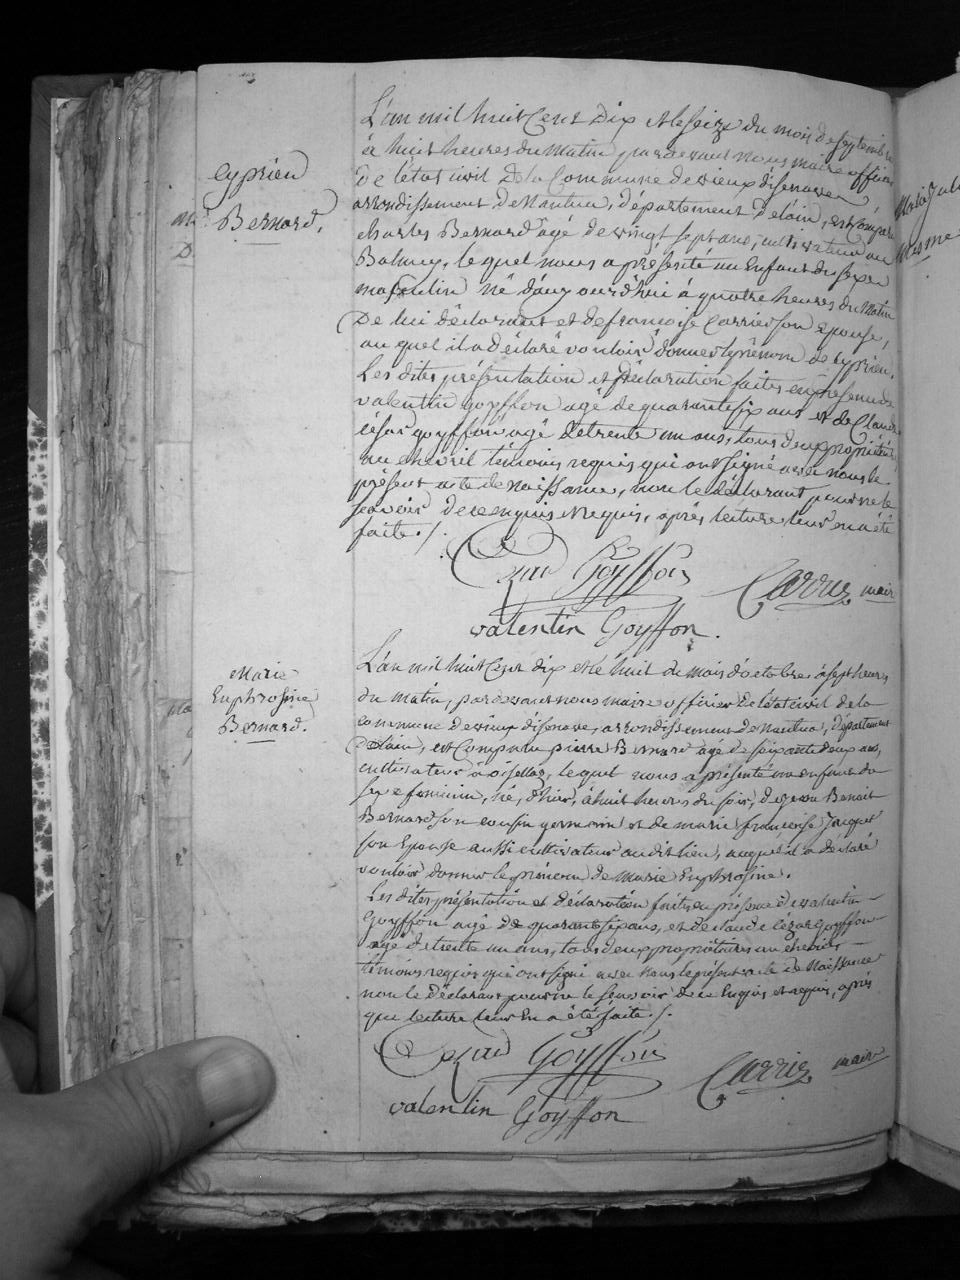 Cyprien
Bernard,
L'an mil huit Cent Dix et le seize du mois de septembre
à huit heures du Matin pardevant nous maire officier
de l'état civil De la Commune de vieux d'isenave,
arrondissement de Nantua, département de l'ain, est Comparu
charles Bernard agé de vingt sept ans, cultivateur au
Balmey, le quel nous a présenté un Enfant du sexe
masculin né d'aujourd'hui à quatre heures du Matin
De lui déclarant et de francoise Carrier son Epouse,
au quel il a déclaré vouloir donner le prénom de Cyprien.
Les dites présentation et Déclaration faites en présence de
valentin Goyffon agé de quarante six ans et de Claude
césar goyffon agé de trente un ans, tous deux propriétaires
au chevril témoins requis qui ont signé avec nous le
présent acte de naissance, non le déclarant pour ne le
scavoir de ce enquis et requis, après lecture leur en a été
faite ./.
Cezar Goyffon
Carrier maire
valentin Goyffon.
Marie
Euphrosine
Bernard.
L'an mil huit Cent dix et le huit du mois d'octobre à sept heures
du matin, pardevant nous maire officier de l'état civil de la
commune de vieux d'isenave, arrondissement de Nantua, département
De l'ain, est Comparu pierre Bernard agé de soixante deux ans,
cultivateur à oisellaz, le quel nous a présenté un enfant du
sexe féminin, né, d'hier, à huit heures du soir, de jean Benoit
Bernard son cousin germain et de marie francoise Jacquet
son Epouse aussi cultivateur au dit lieu, auquel il a déclaré
vouloir donner le prénom de Marie Euphrosine.
Les dites présentation et déclaration faites en présence de valentin
Goyffon agé de quarante six ans, et de claude Cézar Goyffon
agé de trente un ans, tous deux propriétaires au chevril
témoins requis qui ont signé avec nous le présent acte de Naissance
non le Déclarant pour ne le scavoir de ce Enquis et requis, après
que lecture leur En a été faite ./.
Cezar Goyffon
Carrier maire
valentin Goyffon